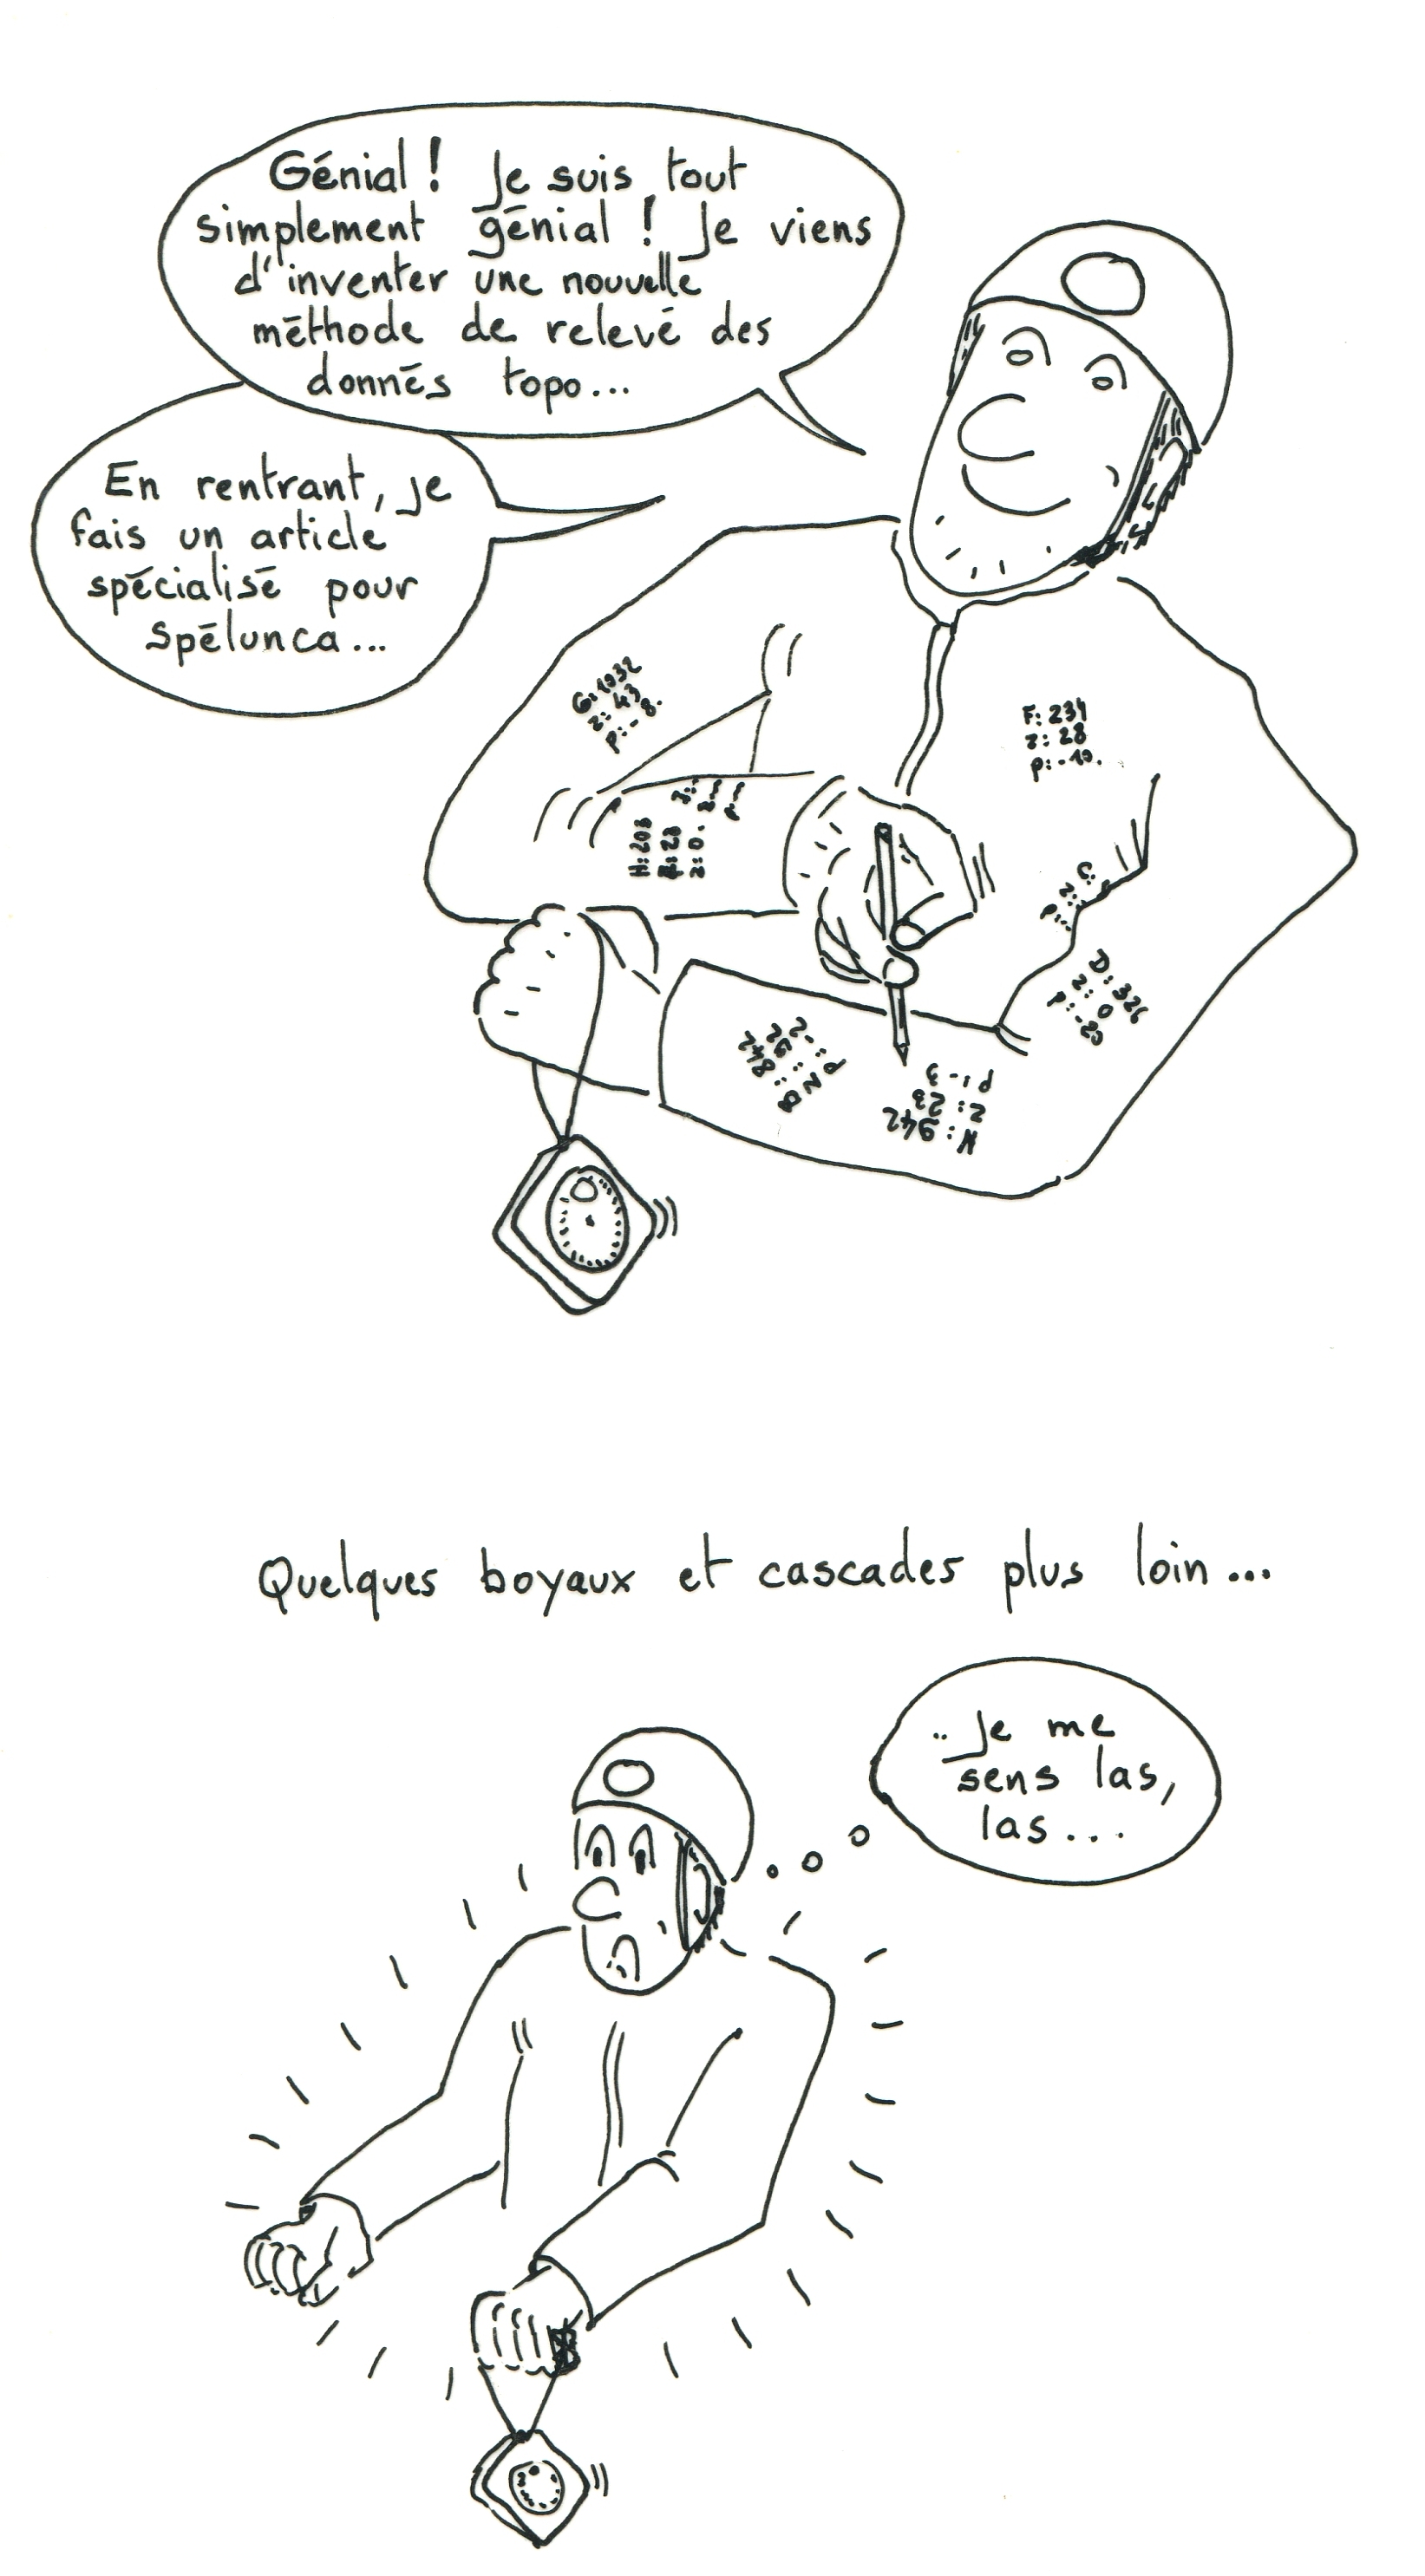 Génial ! Je suis tout
simplement génial ! Je viens
d'inventer une nouvelle
méthode de relevé des
donnés topo...
En rentrant, je
fais un article
spécialisé pour
Spélunca...
G: 1932
z: 43
p: -8.
F: 234
z: 28
p: -10.
H: 203
z: 0.
C:
z:
p:
D: 326
z: 0
p: -20
B: 842
N: 942
z: 23
p: -3
Quelques boyaux et cascades plus loin...
.. Je me
sens las,
las...